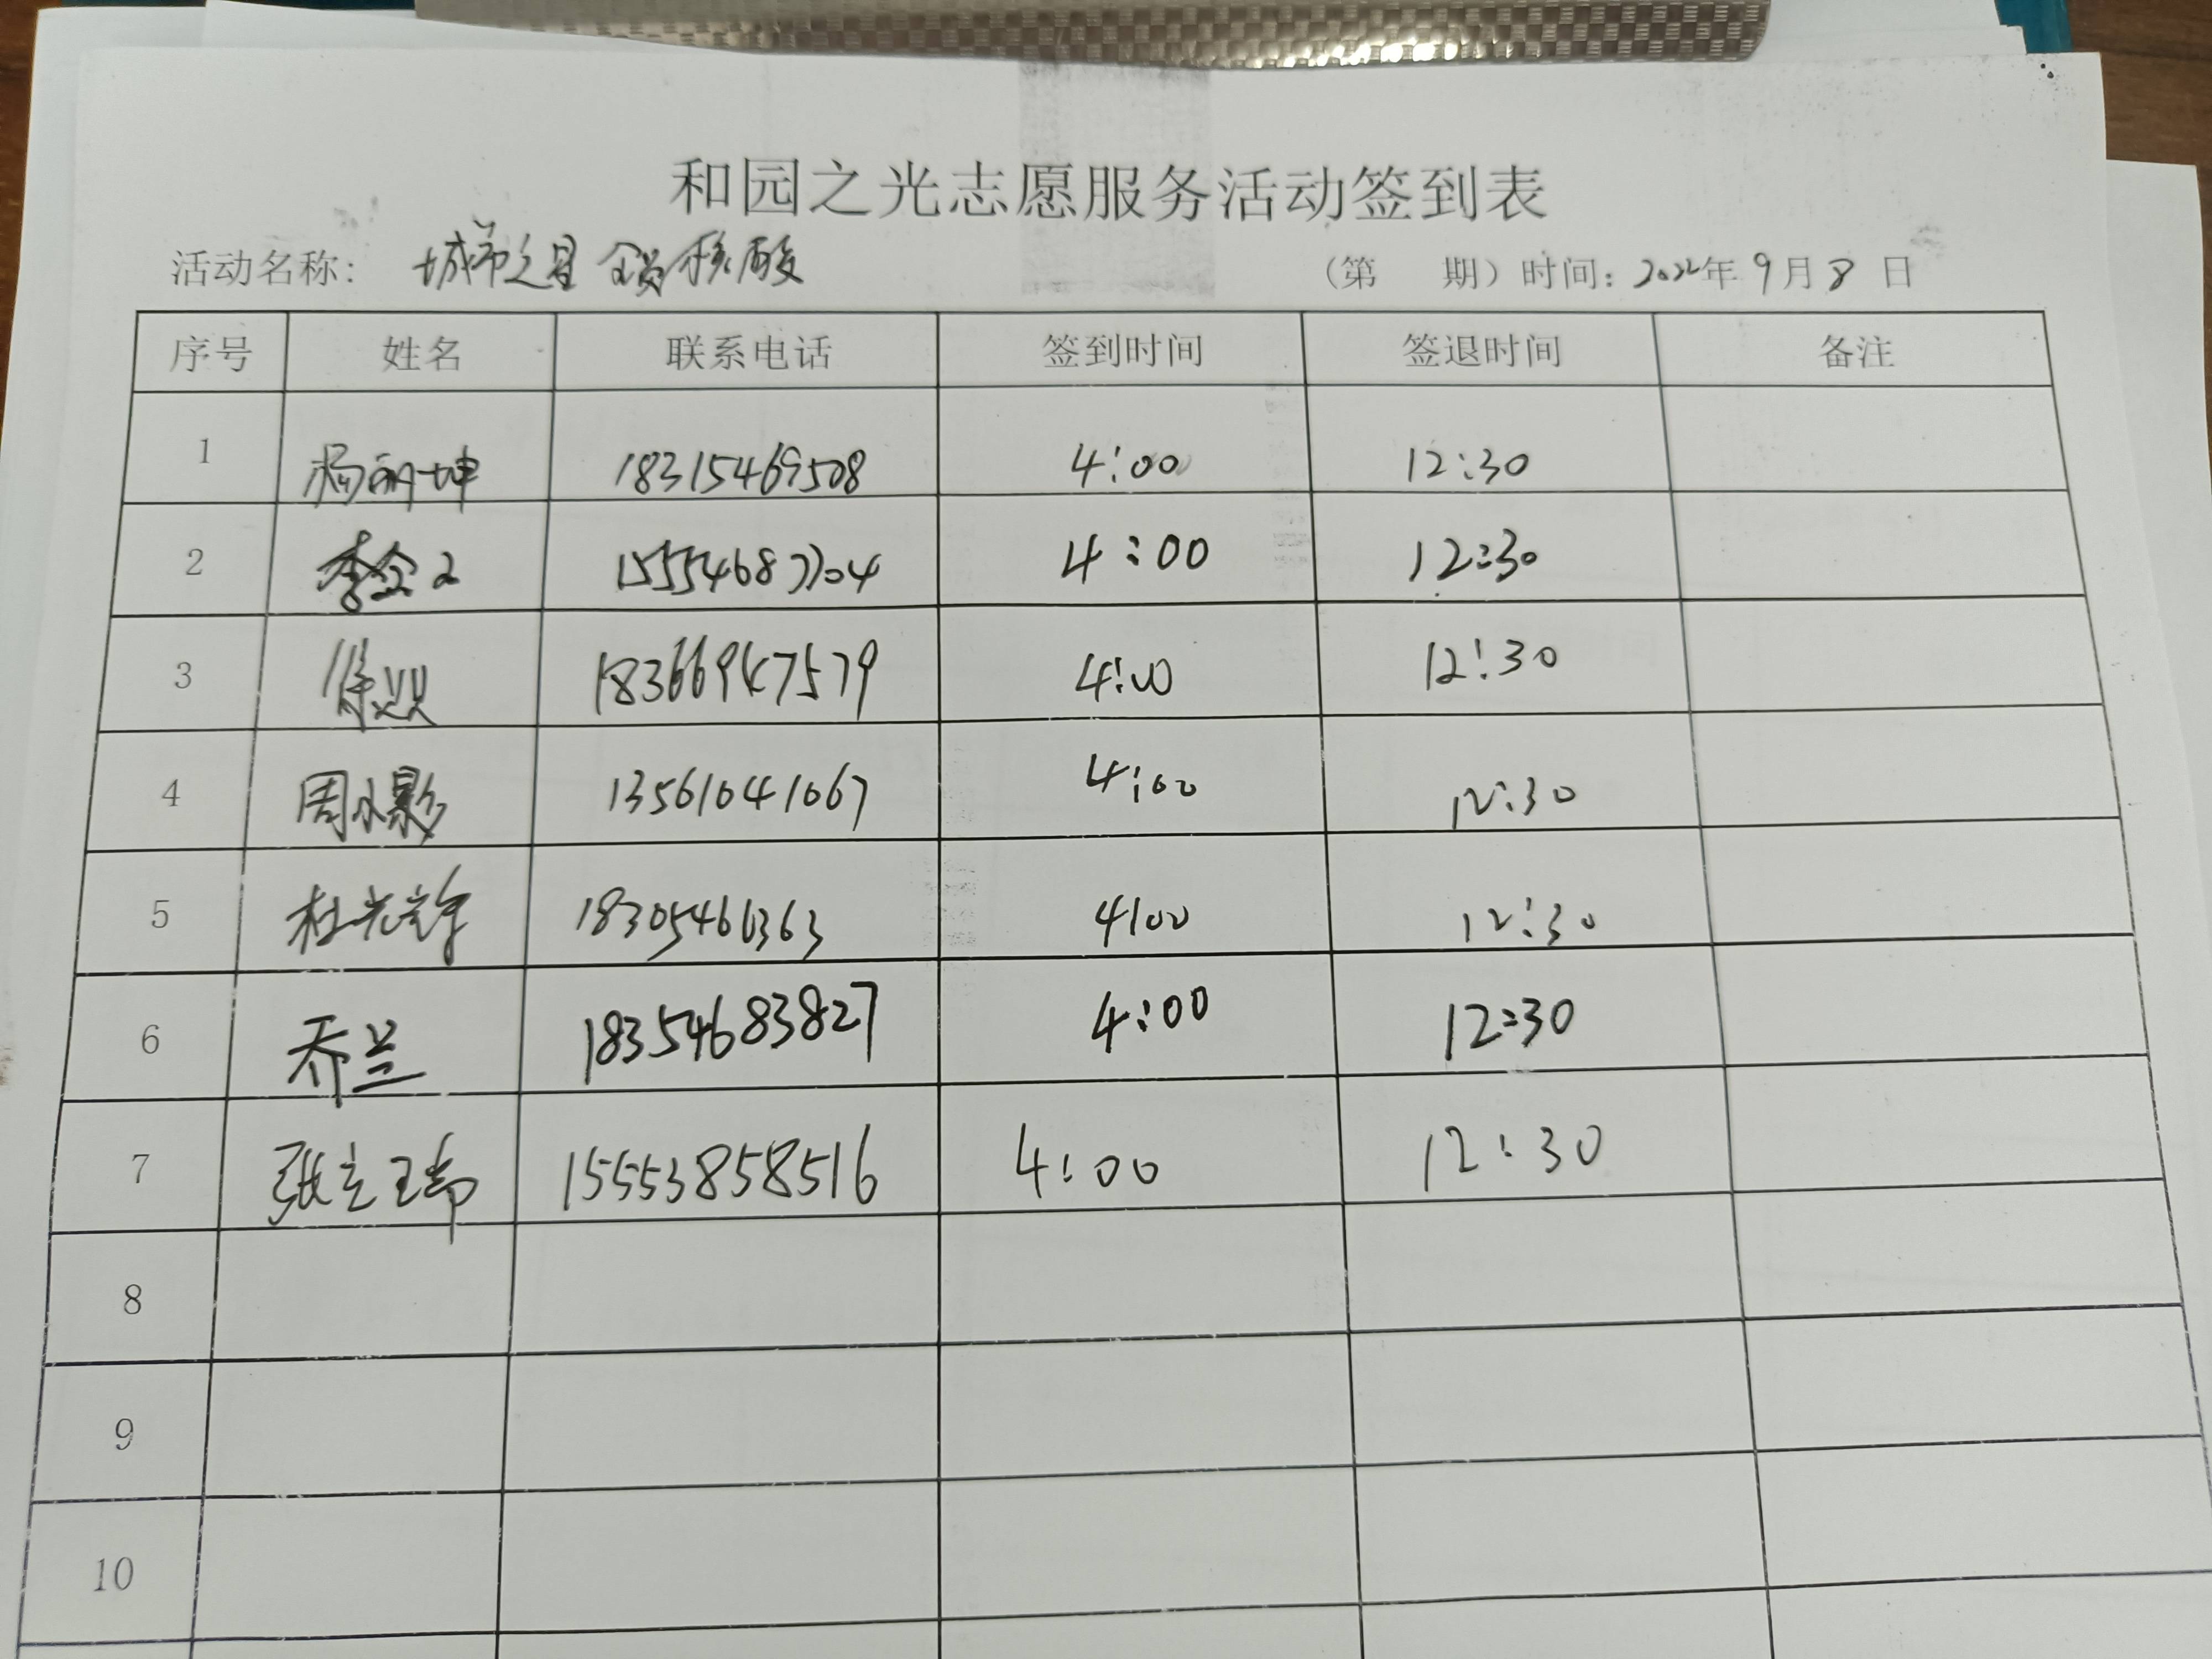 和园之光志愿服务活动签到表
活动名称: 城市之星 全员核酸 (第 期) 时间: 2022年 9月 8 日
序号 姓名 联系电话 签到时间 签退时间 备注
1 杨丽坤 18315469508 4:00 12:30
2 李金 4:00 12:30
3 徐 18366947579 4:00 12:30
4 周小影 13561041067 4:00 12:30
5 杜光 18305466363 4:00 12:30
6 乔兰 18354683827 4:00 12:30
7 张立瑞 15553858516 4:00 12:30
8
9
10